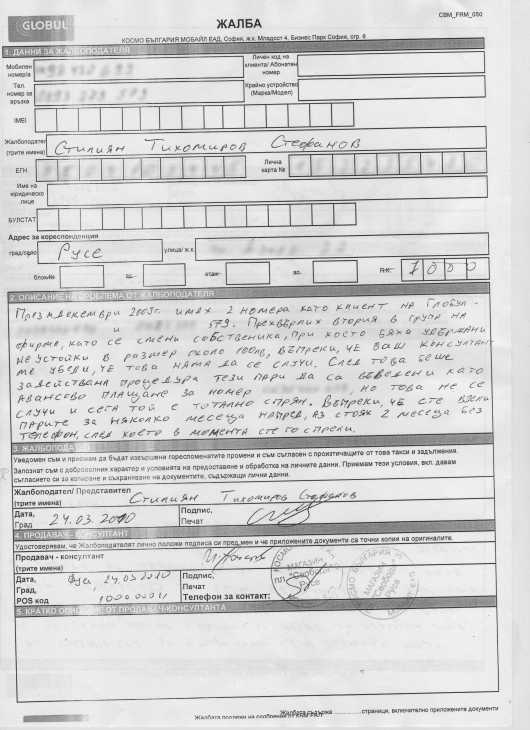 GLOBUL
ЖАЛБА
CBM_FRM_050
КОСМО БЪЛГАРИЯ МОБАЙЛ ЕАД, София, ж.к. Младост 4, Бизнес Парк София, сгр. 6
1. ДАННИ ЗА ЖАЛБОПОДАТЕЛЯ
Мобилен номер/а
Личен код на клиента/ Абонатен номер
Тел. номер за връзка
Крайно устройство (Марка/Модел)
IMEI
Жалбоподател (трите имена) Стилиян Тихомиров Стефанов
ЕГН
Лична карта №
Име на юридическо лице
БУЛСТАТ
Адрес за кореспонденция
град/село Русе улица/ ж.к.
блок№ етаж ап. П.К. 7000
2. ОПИСАНИЕ НА ПРОБЛЕМА ОТ ЖАЛБОПОДАТЕЛЯ
През декември 2009г. имах 2 номера като клиент на Глобул -
и 579. Прехвърлих втория в група на
фирме, като се смени собственика, при което бяха удържани
неустойки в размер около 100лв, въпреки, че ваш консултант
ме увери, че това няма да се случи. След това беше
задействана процедура тези пари да са въведени като
авансово плащане за номер но това не се
случи и сега той е тотално спрян. Въпреки, че сте взели
парите за няколко месеца напред, аз стоях 2 месеца без
телефон, след което в момента сте го спрели.
3. ЖАЛБОПОДАТЕЛ
Уведомен съм и приемам да бъдат извършени гореспоменатите промени и съм съгласен с произтичащите от това такси и задължения.
Запознат съм с доброволния характер и условията на предоставяне и обработка на личните данни. Приемам тези условия, вкл. давам
съгласието си за копиране и съхраняване на документите, съдържащи лични данни.
Жалбоподател/ Представител (трите имена) Стилиян Тихомиров Стефанов
Дата, Град 24.03.2010 Подпис, Печат
4. ПРОДАВАЧ - КОНСУЛТАНТ
Удостоверявам, че Жалбоподателят лично положи подписа си пред мен и че приложените документи са точни копия на оригиналите.
Продавач - консултант (трите имена)
Дата, Град, POS код 24.03.2010
Подпис, Печат
Телефон за контакт:
МАГАЗИН
Русе
КОСМО БЪЛГАРИЯ
МАГАЗИН
Русе
5. КРАТКО ОПИСАНИЕ ОТ ПРОДАВАЧ-КОНСУЛТАНТА
Жалбата съдържа страници, включително приложените документи